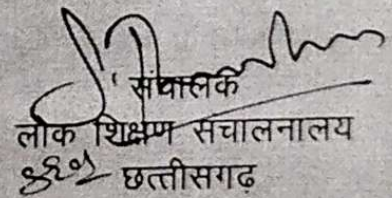 संचालक
लोक शिक्षण संचालनालय
छत्तीसगढ़